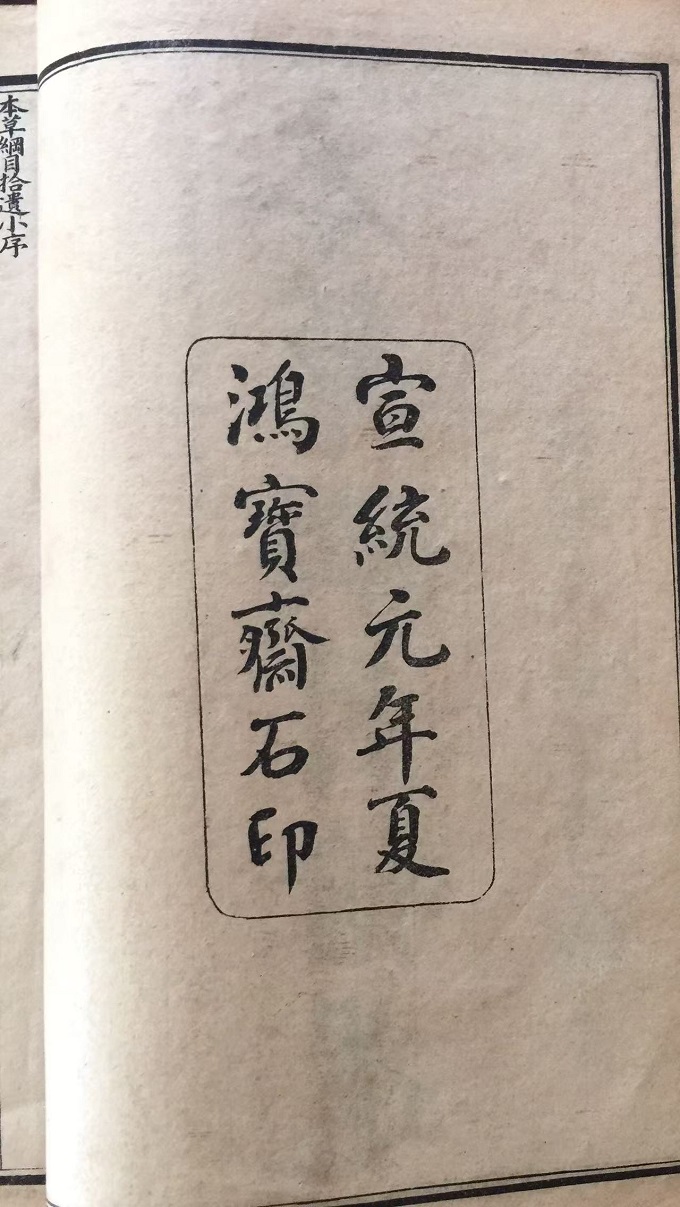 宣統元年夏
鴻寶齋石印
本草綱目拾遺小序